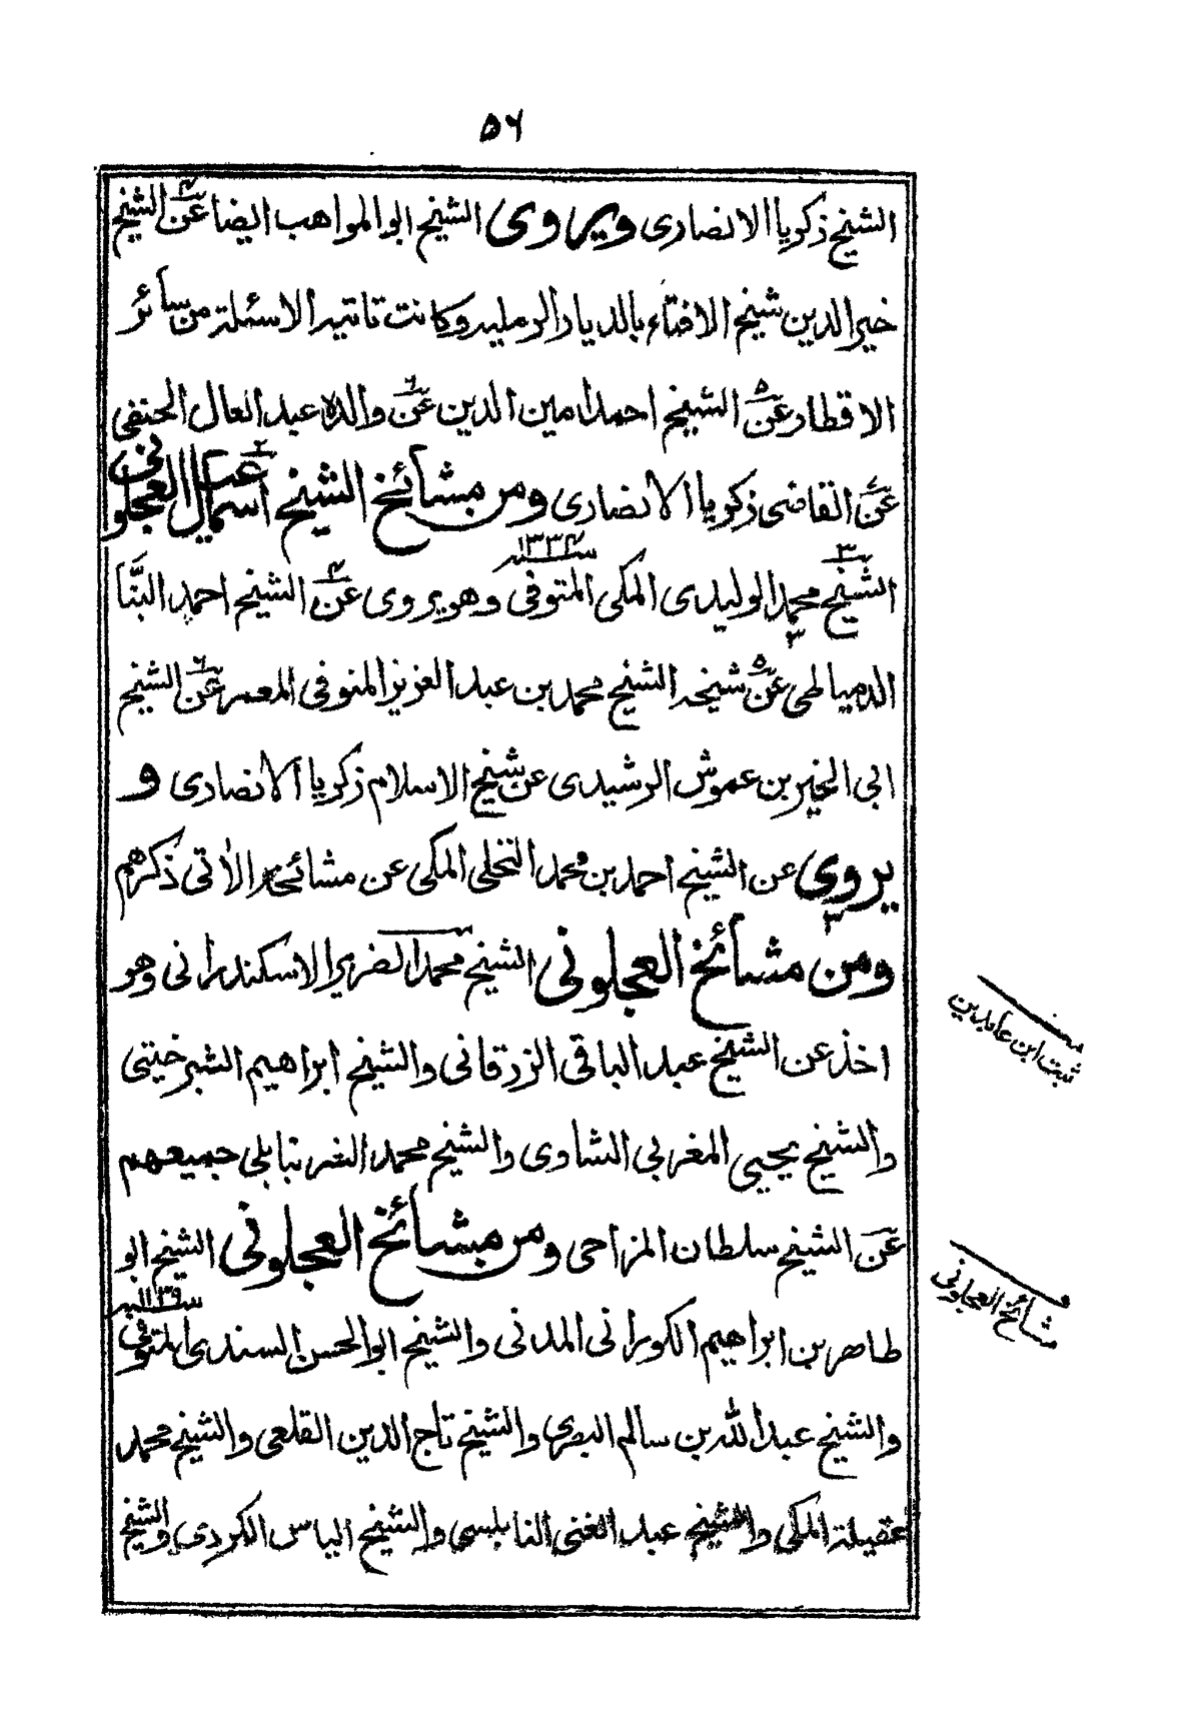 ٥٦
الشيخ زكريا الانصاری ويروی الشيخ ابو المواهب ايضا عن الشيخ
خير الدين شيخ الافتاء بالديار الرمليه وكانت تاتيه الاسئلة من سائر
الاقطار عن الشيخ احمد امين الدين عن والده عبد العال الحنفی
عن القاضی زكريا الانصاری ومن مشائخ الشيخ اسمعيل العجلونی
الشيخ محمد الوليدی المكی المتوفی سنه ١٣٣٤ وهو يروی عن الشيخ احمد البنّا
الدمياطی عن شيخه الشيخ محمد بن عبد العزيز المنوفی المعمر عن الشيخ
ابی الخير بن عموش الرشيدی عن شيخ الاسلام زكريا الانصاری و
يروی عن الشيخ احمد بن محمد النخلی المكی عن مشائخه الاٰتی ذكرهم
ومن مشائخ العجلونی الشيخ محمد الضرير الاسكندرانی وهو
اخذ عن الشيخ عبد الباقی الزرقانی والشيخ ابراهيم الشبرخيتی
والشيخ يحيی المغربی الشاوی والشيخ محمد البابلی جميعهم
عن الشيخ سلطان المزاحی ومن مشائخ العجلونی الشيخ ابو
طاهر بن ابراهيم الكورانی المدنی والشيخ ابو الحسن السندی المتوفی سنه ١١٣٩
والشيخ عبد الله بن سالم البصری والشيخ تاج الدين القلعی والشيخ محمد
عقيلة المكی والشيخ عبد الغنی النابلسی والشيخ الياس الكردی والشيخ
ثبت ابن عابدين
مشائخ العجلونی